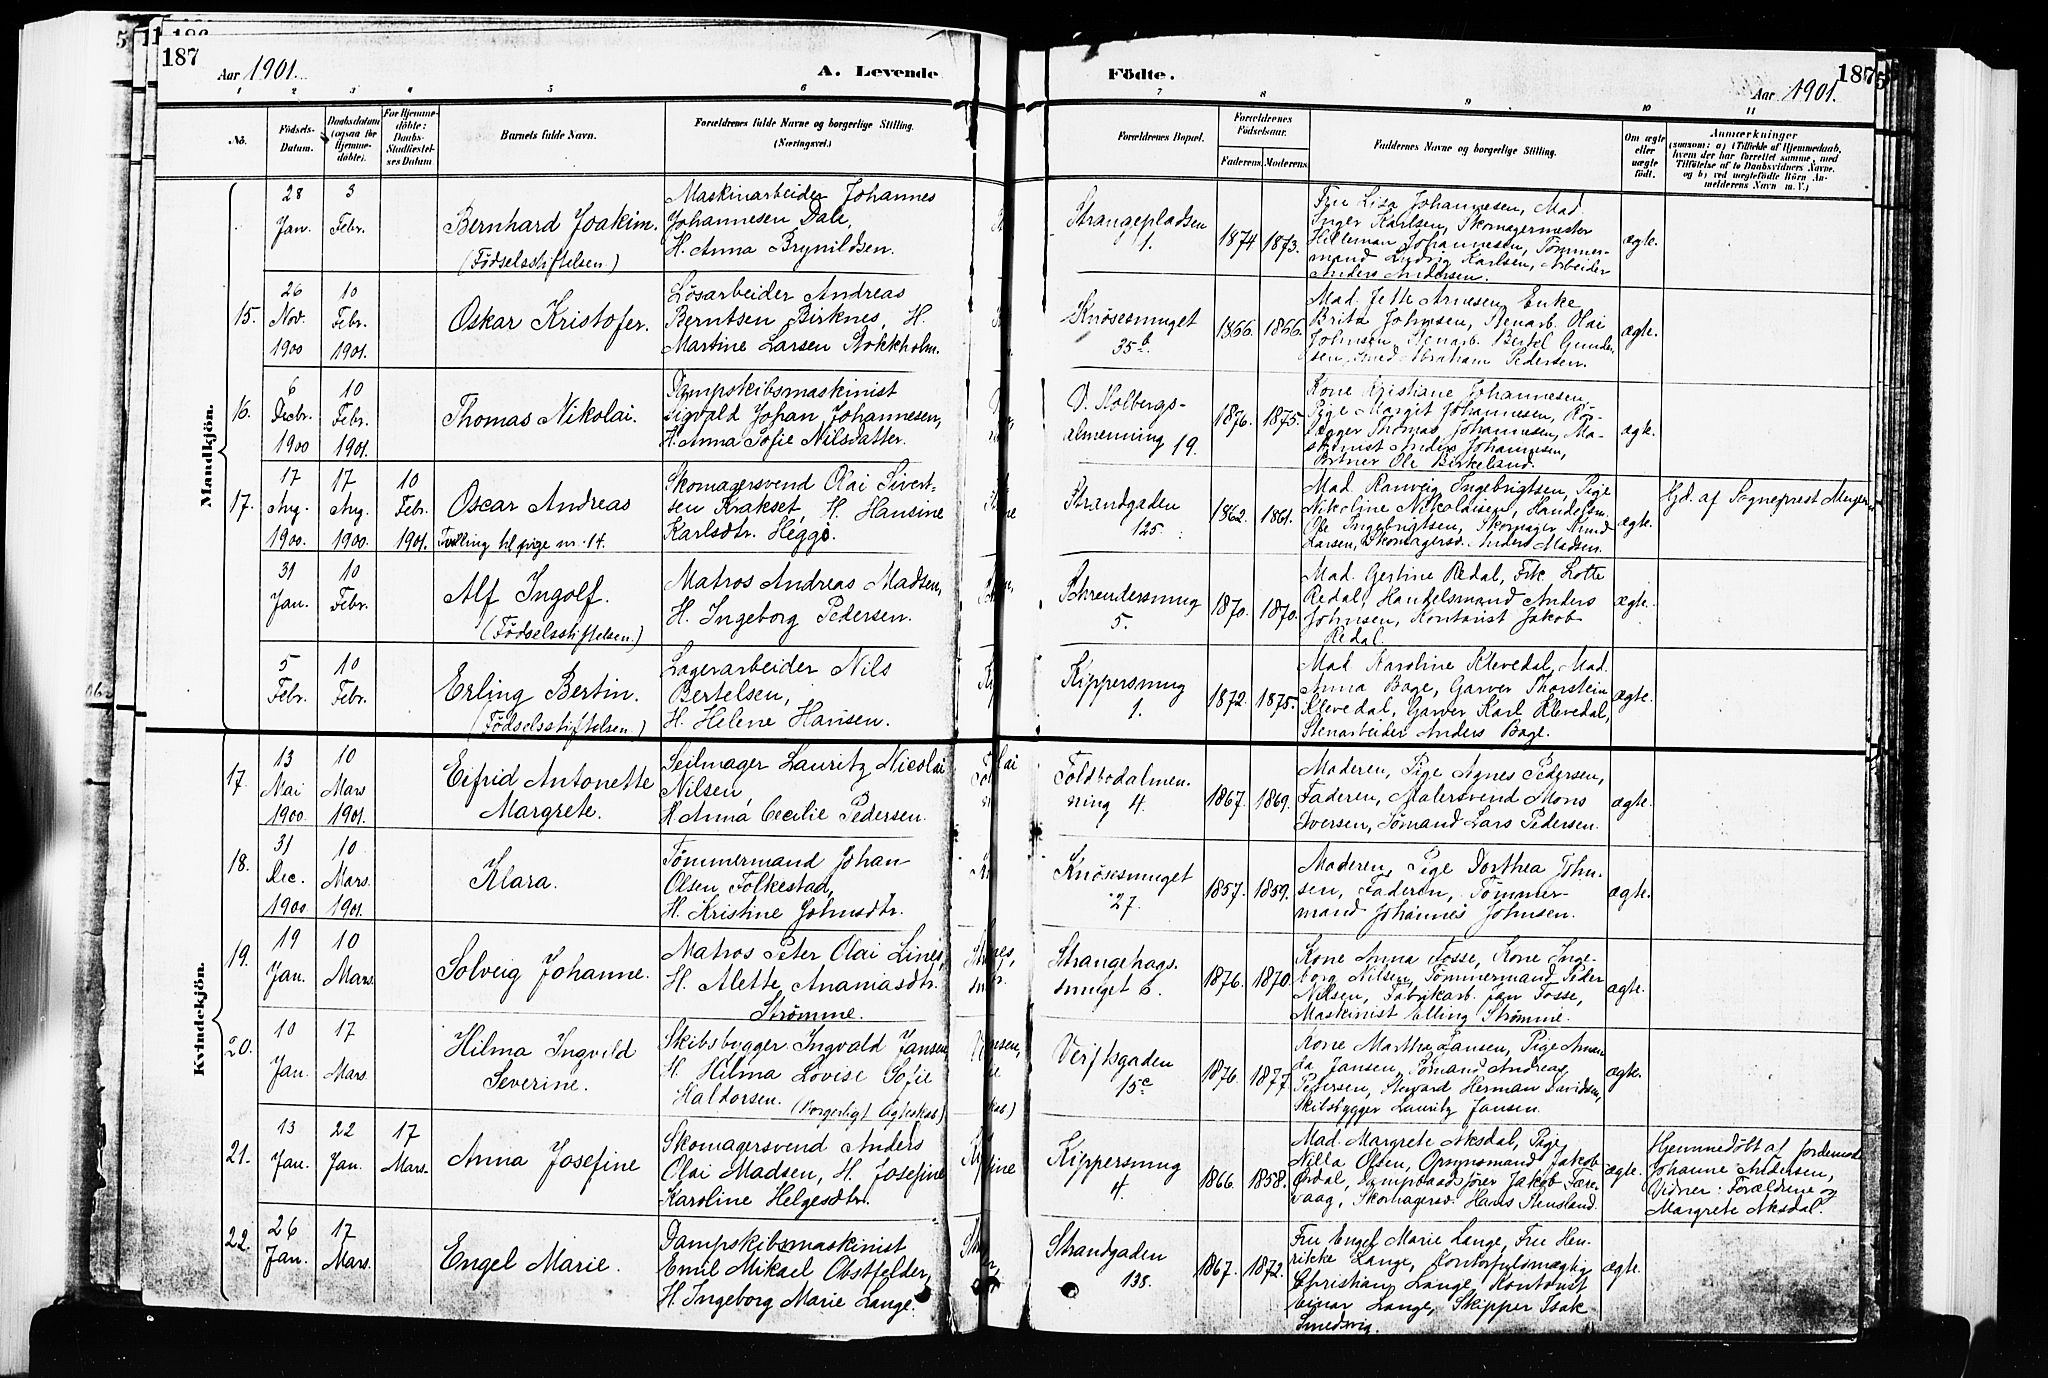 187
Aar 1901.
A. Levende
Födte.
Aar 1901.
187
1
2
3
4
5
6
7
8
9
10
11
No.
Födsels-Datum.
Daabsdatum (ogsaa for Hjemme-döbte).
For Hjemme-döbte: Daabs-Stadfæstel-ses Datum
Barnets fulde Navn.
Forældrenes fulde Navne og borgerlige Stilling. (Næringsvei.)
Forældrenes Bopæl.
Forældrenes Födselsaar.
Faderens.
Moderens.
Faddernes Navne og borgerlige Stilling.
Om ægte eller uægte födt.
Anmærkninger
(saasom: a) i Tilfælde af Hjemmedaab, hvem der har forrettet samme, med Tilföielse af to Daabsvidners Navne, og b) ved uægtefödte Börn An-melderens Navn m. V.)
Mandkjön.
28 Jan.
3 Febr.
Bernhard Joakim.
(Födselsstiftelsen.)
Maskinarbeider Johannes
Johannesen Dale,
H. Anna Brynildsen.
Strangepladsen
1.
1874
1873.
Fru Lisa Johannesen, Mad.
Inger Karlsen, Skomagermester
Hilleman Johannesen, Tömmer-
mand Ludvig Karlsen, Arbeider
Anders Andersen.
ægte.
15.
26 Nov. 1900
10 Febr. 1901.
Oskar Kristofer.
Lösarbeider Andreas
Berntsen Birknes, H.
Martine Larsen Stokkholm.
Knösesmuget
35b.
1866.
1866.
Mad. Jette Arnesen, Enke
Brita Johnsen, Stenarb. Olai
Johnsen, Stenarb. Bertel Gunder-
sen, Smed Abraham Pedersen.
ægte.
16.
6 Decbr. 1900
10 Febr. 1901.
Thomas Nikolai.
Dampskibsmaskinist
Sigvald Johan Johannesen,
H. Anna Sofie Nilsdatter.
D. Holbergs-
almenning 19.
1876.
1875.
Kone Kristiane Johannesen,
Pige Margit Johannesen, Rör-
lægger Thomas Johannesen, Ma-
skinist Anders Johannesen,
Portner Ole Birkeland.
ægte.
17.
17 Aug. 1900.
17 Aug. 1900.
10 Febr. 1901.
Oscar Andreas
Tvilling til pige nr. 14.
Skomagersvend Olai Sivert-
sen Krakset, H. Hansine
Karlsdtr. Heggö.
Strandgaden
125.
1862.
1861.
Mad. Ranveig Ingebrigtsen, Pige
Nikoline Nikolaisen, Handelsm.
Ole Ingebrigtsen, Skomager Knud
Larsen, Skomagersv. Anders Madsen.
ægte.
Hjd. af Sogneprest Meyer
31 Jan.
10 Febr.
Alf Ingolf.
(Födselsstiftelsen.)
Matros Andreas Madsen,
H. Ingeborg Pedersen.
5.
1870.
1870.
Mad. Gertine Redal, Frk. Lotte
Redal, Handelsmand Anders
Johnsen, Kontorist Jakob
Redal.
ægte.
5 Febr.
10 Febr.
Erling Bertin.
(Födselsstiftelsen.)
Lagerarbeider Nils
Bertelsen,
H. Helene Hansen.
Kippersmug
1.
1872.
1875.
Mad. Karoline Klevedal, Mad.
Anna Bage, Garver Thorstein
Klevedal, Garver Karl Klevedal,
Stenarbeider Anders Bage.
ægte.
Kvindekjön.
17.
13 Mai 1900.
10 Mars 1901.
Eifrid Antonette
Margrete.
Seilmager Lauritz Nicolai
Nilsen,
H. Anna Cecilie Pedersen.
Toldbodalmen-
ning 4.
1867.
1869.
Moderen, Pige Agnes Pedersen,
Faderen, Malersvend Mons
Iversen, Sömand Lars Pedersen.
ægte.
18.
31 Dec. 1900
10 Mars. 1901.
Klara.
Tömmermand Johan
Olsen Folkestad,
H. Kristine Johnsdtr.
Knösesmuget
27.
1857.
1859.
Moderen, Pige Dorthea John-
sen, Faderen, Tömmer-
mand Johannes Johnsen.
ægte.
19.
19 Jan.
10 Mars.
Solveig Johanne.
Matros Peter Olai Lines,
H. Alette Ananiasdtr.
Strømme.
Strangehags-
smuget 6.
1876.
1870.
Kone Anna Fosse, Kone Inge-
borg Nilsen, Tömmermand Peder
Nilsen, Fabrikarb. Fosse,
Maskinist Elling Strømme.
ægte.
20.
10 Jan.
17 Mars.
Hilma Ingvild
Severine.
Skibsbygger Ingvald Jansen,
H. Hilma Lovise Sofie
Haldorsen. (Borgerligt Ægteskab)
Verftsgaden
15c
1876.
1877.
Kone Martha Jansen, Pige Aman-
da Jansen, Sömand Andreas
Pedersen, Steward Herman Davidsen,
Skibsbygger Lauritz Jansen.
ægte.
21.
13 Jan.
22 Jan.
17 Mars.
Anna Josefine
Skomagersvend Anders
Olai Madsen, H. Josefine
Karoline Helgesdtr.
Kippersmug
4.
1866.
1858.
Mad. Margrete Aksdal, Pige
Nilla Olsen, Opsynsmand Jakob
Jakob Fære-
vaag, Skomagersv. Hans Stensland.
ægte.
Hjemmedöbt af Jordemor
Johanne Andersen,
Vidner: Forældrene og
Margrete Aksdal.
22.
26 Jan.
17 Mars.
Engel Marie.
Dampskibsmaskinist
Emil Mikael Obstfelder,
H. Ingeborg Marie Lange.
Strandgaden
138.
1867.
1872.
Fru Engel Marie Lange, Fru Hen-
rikke Lange, Kontorfuldmægtig
Christian Lange, Kontorist
Einar Lange, Skipper Isak
Smedvig.
ægte.